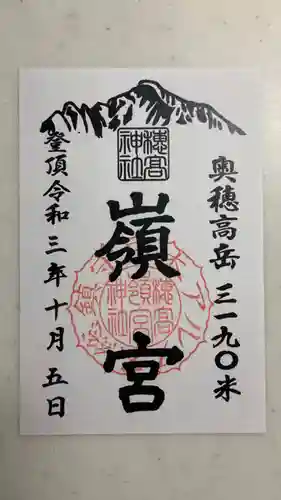 奥穂高岳 三一九〇米
穂髙
神社
嶺宮
穂髙
嶺宮
神社
登頂令和三年十月五日